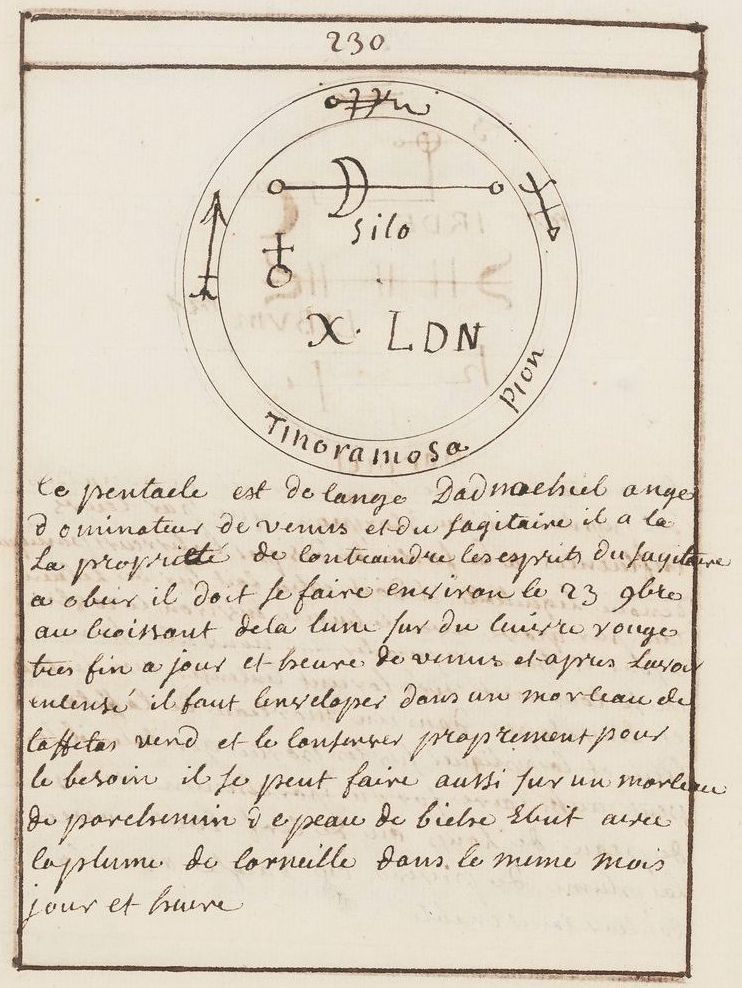 230
Silo
X. LDN
Pion
Tinoramosa
Ce pentacle est de lange Dadnachiel ange
dominateur de venus et du sagitaire il a la
La proprieté de contraindre les esprits du sagitaire
a obeir il doit se faire environ le 23 9bre
au croissant dela lune sur du cuivre rouge
tres fin a jour et heure de venus et apres Lavoir
encensé il faut lenveloper dans un morceau de
taffetas verd et le conserver proprement pour
le besoin il se peut faire aussi sur un morceau
de parchemin de peau de biche Ecrit avec
la plume de corneille dans le meme mois
jour et heure